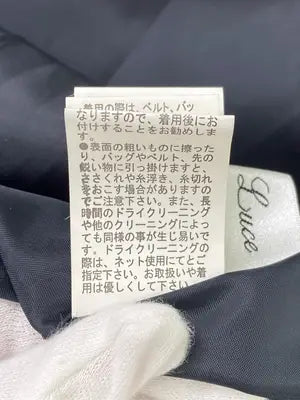 着用の際は、ベルト、バッ
なりますので、着用後にお
付けすることをお勧めしま
す。
●表面の粗いものに擦った
り、バッグやベルト、先の
鋭い物に引っ掛けますと、
ささくれや糸浮き、糸切れ
をおこす場合がありますの
でご注意下さい。また、長
時間のドライクリーニング
や他のクリーニングによっ
ても同様の事が生じ易いで
す。ドライクリーニングの
際は、ネット使用にてとご
指定下さい。お取扱いや着
用は優しくして下さい。
Luce